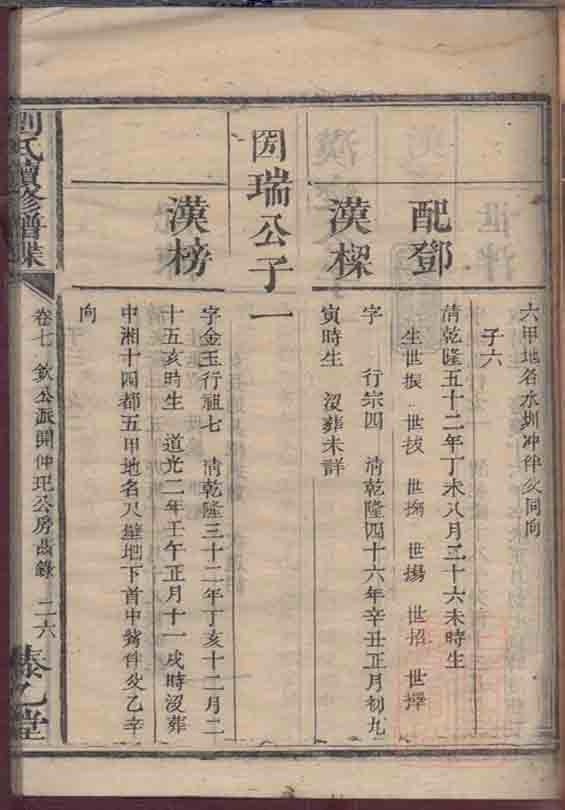 六甲地名水圳冲伴父同向
子六
配鄧
清乾隆五十二年丁未八月二十六未時生
生世振 世拔 世搊 世揚 世招 世擇
漢樑
字 行宗四 清乾隆四十六年辛丑正月初九
寅時生 沒葬未詳
瑞公子一
漢榜
字金玉行祖七 清乾隆三十二年丁亥十二月二
十五亥時生 道光二年壬午正月十一戌時沒葬
中湘十四都五甲地名 壁地下首中 伴父乙辛
向
劉氏續修譜牒
卷七 欽公派開仲玘公房齒錄 二六
乙堂